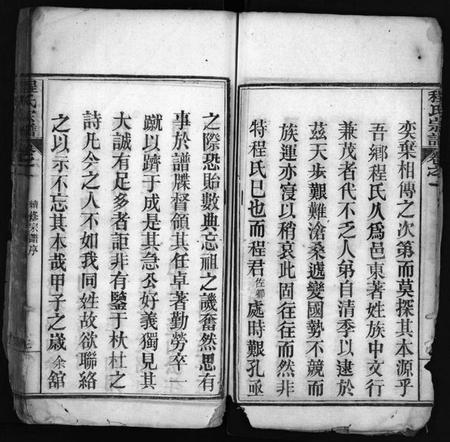 程氏宗譜 卷之一
奕棄相傳之次第而莫探其本源乎
吾鄉程氏久爲邑東著姓族中文行
兼茂者代不乏人第自清季以逮於
茲天步艱難滄桑遞變國勢不競而
族運亦寖以稍衰此固往往而然非
特程氏已也而程君佐卿處時艱孔亟
之際恐貽數典忘祖之譏奮然思有
事於譜牒督領其任卓著勤勞卒一
蹴以躋于成是其急公好義獨見其
大誠有足多者詎非有鑒于杕杜之
詩凡今之人不如我同姓故欲聯絡
之以示不忘其本哉甲子之歲余舘
程氏宗譜 卷之一 續修宗譜序